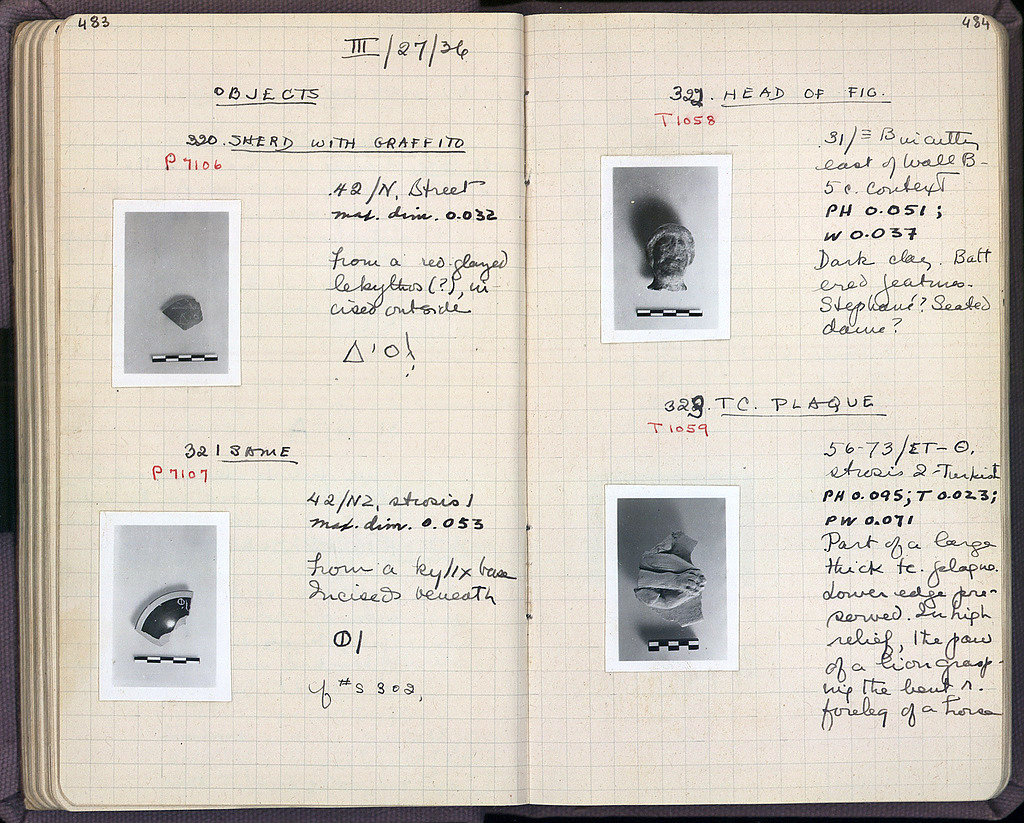 483
III/27/36
OBJECTS
320. SHERD WITH GRAFFITO
P 7106
42/N, Street
max. dim. 0.032
From a red-glazed
lekythos (?), in-
cised outside
Δ'Ο
321 SAME
P 7107
42/NZ, strosis 1
max. dim. 0.053
From a kylix base
Incised beneath
ΦΙ
cf #S 302,
484
322. HEAD OF FIG.
T 1058
31/Ξ B in cutting
east of Wall B-
5 c. context
PH 0.051;
W 0.037
Dark clay. Batt
ered features.
Stephane? Seated
dame?
323. TC. PLAQUE
T 1059
56-73/ΣT-Θ.
strosis 2-Turkish
PH 0.095; T 0.023;
PW 0.071
Part of a large
thick tc. plaque.
Lower edge pre-
served. In high
relief, the paw
of a lion grasp-
ing the bent r.
foreleg of a horse